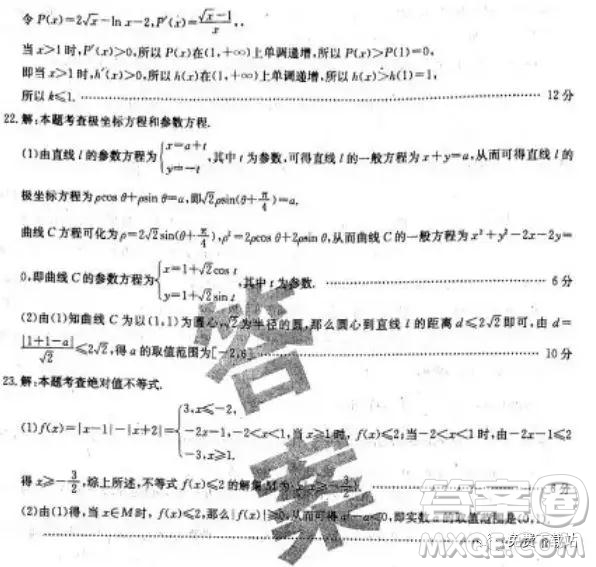 令 P(x)=2√x-ln x-2,P′(x)=(√x-1)/x,..
当 x>1 时,P′(x)>0,所以 P(x)在(1,+∞)上单调递增,所以 P(x)>P(1)=0,
即当 x>1 时,h′(x)>0,所以 h(x)在(1,+∞)上单调递增,所以 h(x)>h(1)=1,
所以 k≤1. 12 分
22.解:本题考查极坐标方程和参数方程.
(1)由直线 l 的参数方程为{x=a+t y=-t,其中 t 为参数,可得直线 l 的一般方程为 x+y=a,从而可得直线 l 的
极坐标方程为 ρcos θ+ρsin θ=a,即√2ρsin(θ+π/4)=a.
曲线 C 方程可化为 ρ=2√2sin(θ+π/4),ρ²=2ρcos θ+2ρsin θ,从而曲线 C 的一般方程为 x²+y²-2x-2y=
0,即曲线 C 的参数方程为{x=1+√2cos t y=1+√2sin t,其中 t 为参数. 6 分
(2)由(1)知曲线 C 为以(1,1)为圆心,√2为半径的圆,那么圆心到直线 l 的距离 d≤2√2即可,由 d=
|1+1-a|/√2≤2√2,得 a 的取值范围为[-2,6]. 10 分
23.解:本题考查绝对值不等式.
(1)f(x)=|x-1|-|x+2|={3,x≤-2, -2x-1,-2<x<1, -3,x≥1. 当 x≥1 时,f(x)≤2;当-2<x<1 时,由-2x-1≤2
得 x≥-3/2,综上所述,不等式 f(x)≤2 的解集 M 为 5 分
(2)由(1)得,当 x∈M 时,f(x)≤2,那么|f(x)|≥0,从而可得 a²-a≤0,即实数 a 的取值范围是
答案
答案圈
MXQE.COM
免费下载站